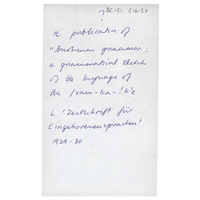 BC 151 C12.31
re publication of
"Bushman grammar:
a grammatical sketch
of the language of
the /xam-ka-!k'e
in 'Zeitschrift für
Eingeborenensprachen'
1929-30